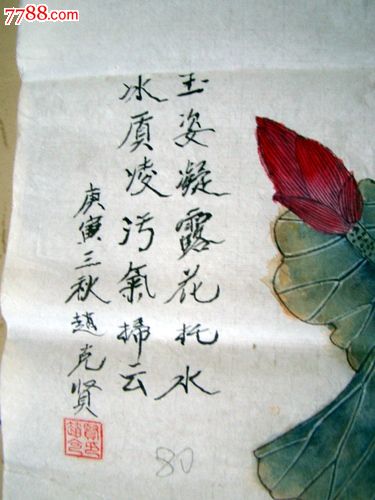 7788.com
玉姿凝露花托水
冰质凌污氣掃云
庚寅三秋趙克贤
80